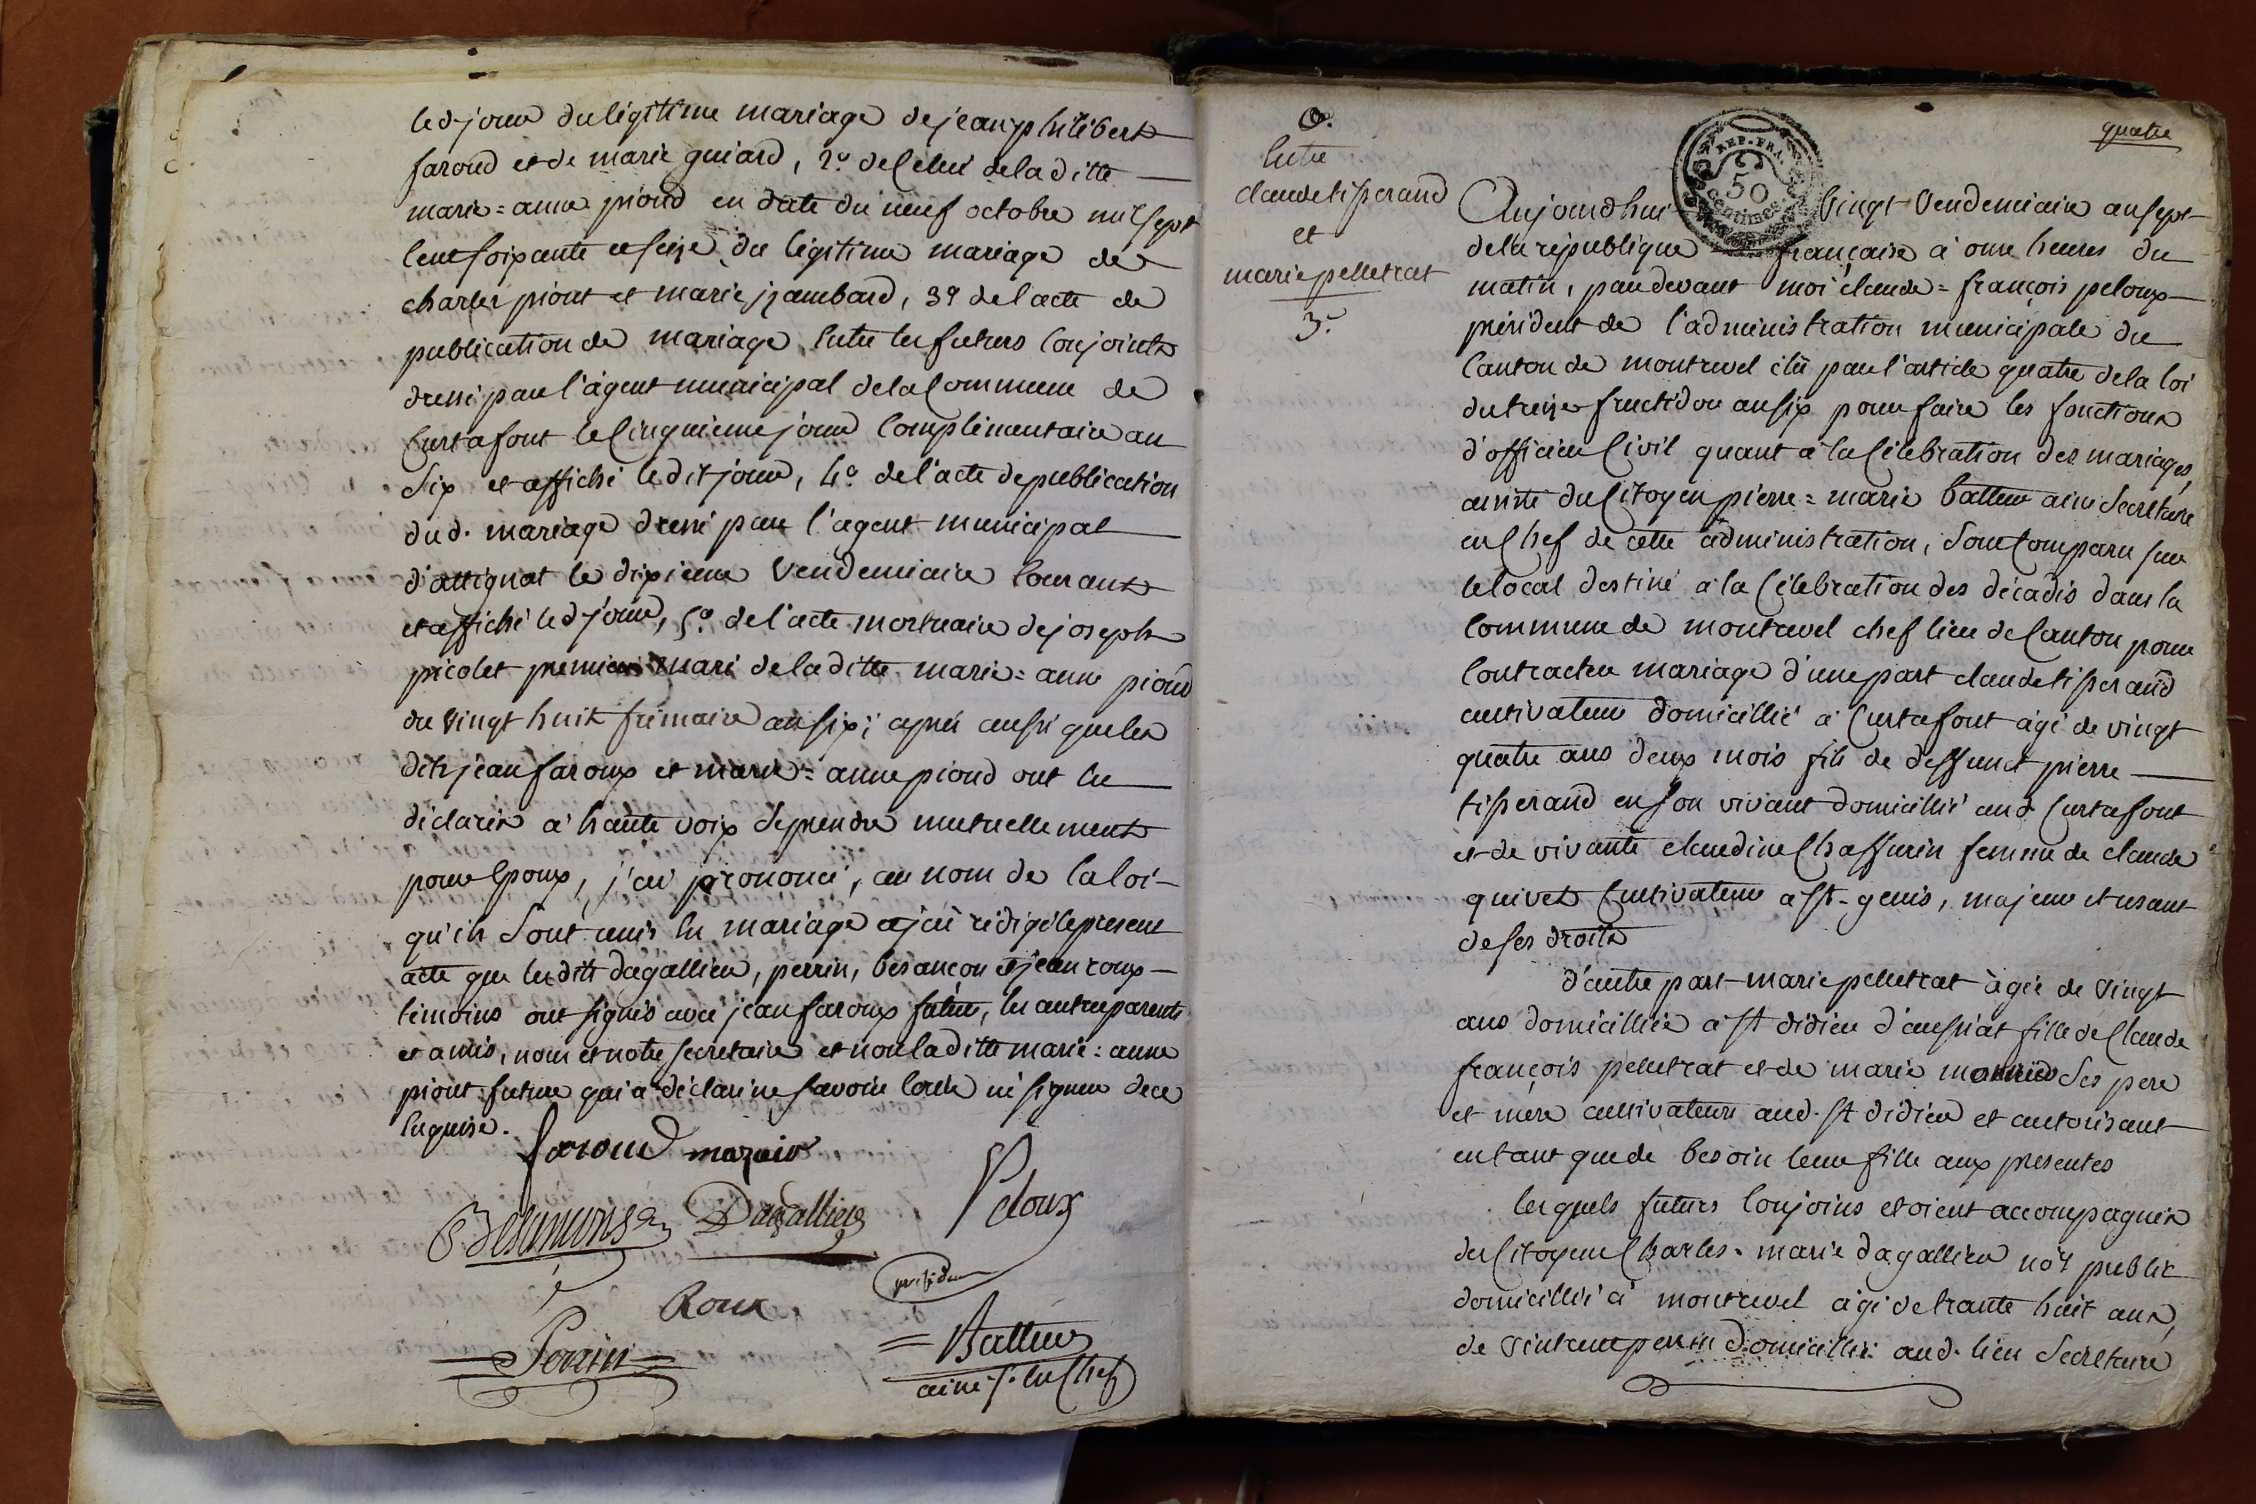 led. jour du légitime mariage de jean philibert
faroud et de marie guiard, 2.º de celui de la ditte
marie = anne pioud en date du neuf octobre mil sept
cent soixante et seize du légitime mariage de
charles piout et marie jambard, 3º de l'acte de
publication de mariage entre les futurs conjoints
dressé par l'agent municipal de la commune de
Curtafont le cinquieme jour complémentaire an
Six et affiché le dit jour, 4º. de l'acte de publication
dud. mariage dressé par l'agent municipal
d'attignat le dixieme Vendemiaire courant
et affiché led. jour, 5º. de l'acte mortuaire de joseph
picolet premier mari de la ditte marie = anne pioud
du vingt huit frimaire an six; après aussi que les
dits jean faroux et marie = anne pioud ont eu
déclarés à haute voix se prendre mutuellement
pour Epoux, j'ai prononcé, au nom de la loi
qu'ils sont unis en mariage et j'ai rédigé le present
acte que les dits dagallier, perrin, besançon et jean roux
témoins ont signés avec jean faroux futur, les autres parents
et amis, nous et notre secretaire et non la ditte marie = anne
piout future qui a déclaré ne savoir écrire ni signer de ce
enquise.
faroud mazuir
Peloux
Besançon Dagallier
président
Roux
Perrin
Batteur
ainé s. en Chef
quatre
Entre
claude tisserand
et
marie pelletrat
3.
REP. FRA.
50
centimes
Aujourd'hui vingt Vendemiaire an sept
de la république française à onze heures du
matin, par devant moi claude = françois peloux
président de l'administration municipale du
Canton de montrevel élu par l'article quatre de la loi
du treize fructidor an six pour faire les fonctions
d'officier Civil quant à la Célébration des mariages,
assisté du Citoyen pierre = marie batteur ainé Secretaire
en Chef de cette administration, sont comparu sur
le local destiné à la Célébration des décadis dans la
Commune de montrevel chef lieu de Canton pour
Contracter mariage d'une part claude tisserand
cultivateur domicillié à Curtafont âgé de vingt
quatre ans deux mois fils de deffunct pierre
tisserand en son vivant domicillié aud. Curtafont
et de vivante claudine Chaffurin femme de claude
quivet Cultivateur à St. genis, majeur et usant
de ses droits
d'autre part marie pelletrat âgée de vingt
ans domicilliée à St didier d'aussiat fille de Claude
françois pelletrat et de marie ses pere
et mère cultivateurs aud. St didier et autorisant
en tant que de besoin leur fille aux présentes
lesquels futurs conjoins etoient accompagnés
des Citoyens Charles = marie dagallier not public
domicillié à montrevel âgé de trante huit ans,
de vintcent perrin domicillié aud. lieu Secretaire